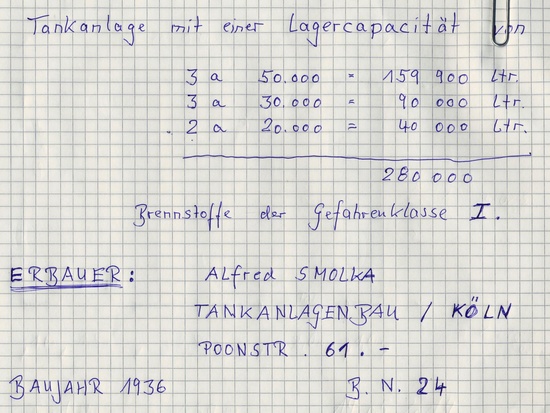 Tankanlage mit einer Lagercapacität von
3 a 50.000 = 159 900 Ltr.
3 a 30.000 = 90 000 Ltr.
2 a 20.000 = 40 000 Ltr.
280 000
Brennstoffe der Gefahrenklasse I.
ERBAUER: Alfred SMOLKA
TANKANLAGENBAU / KÖLN
POONSTR. 61.-
BAUJAHR 1936 B. N. 24